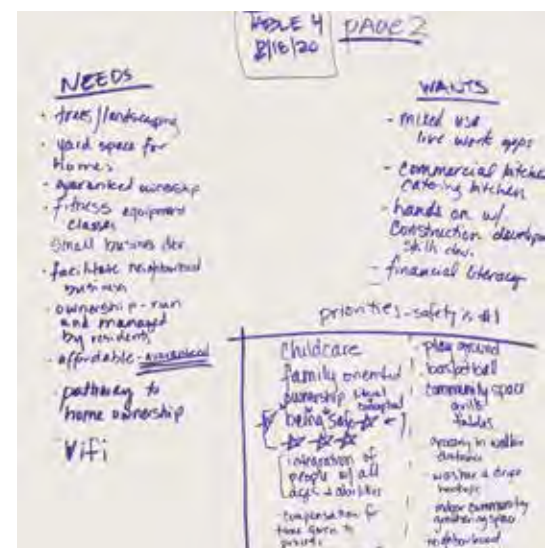 TABLE 4
PAGE 2
NEEDS
- trees/landscaping
- yard space for
homes
- guaranteed ownership
- fitness equipment
classes
small business dev.
- facilitate neighborhood
business
- ownership-run
and managed
by residents
- affordable-guaranteed
- pathway to
home ownership
Wifi
WANTS
- mixed use
live work
- commercial kitchen
catering kitchen
- hands on w/
construction
skill dev.
- financial literacy
priorities-safety is #1
Childcare
family oriented
ownership
being safe
integration of
people w/ all
ages + abilities
compensation for
time given to
play ground
basketball
community space
grills
tables
grocery in
distance
washer + dryer
hookups
indoor community
gathering space
neighborhood